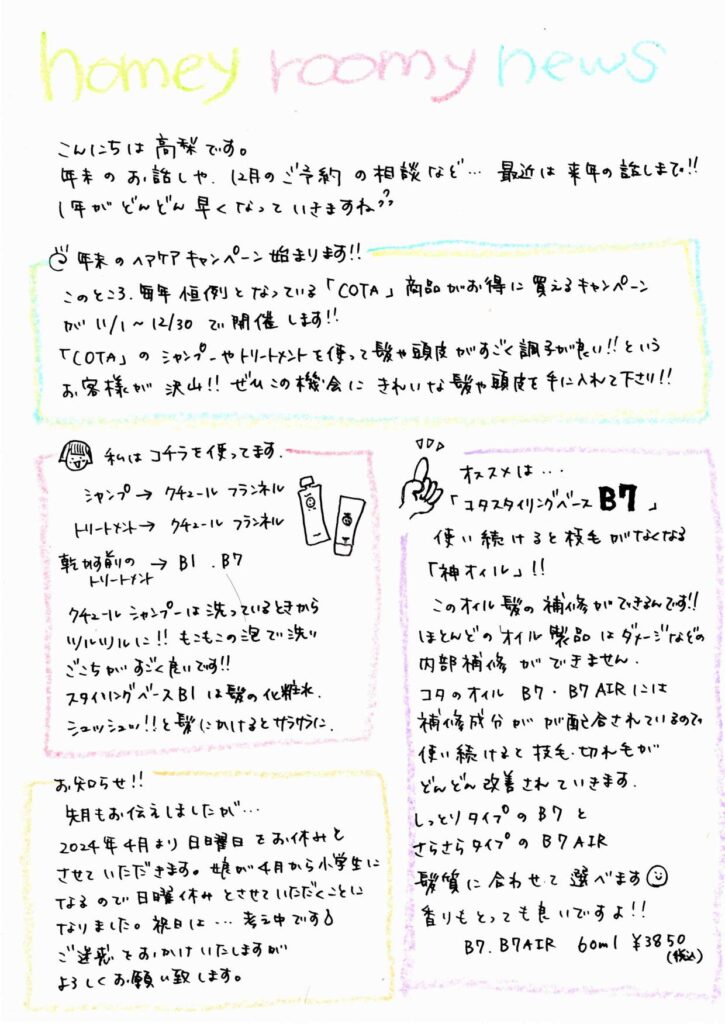 homey roomy news
こんにちは 高梨です。
年末の お話しや、12月のご予約 の相談など… 最近は 来年の話しまで!!
1年が どんどん 早く なって いきますね??
年末の ヘアケア キャンペーン 始まります!!
このところ、毎年 恒例と なっている「COTA」商品がお得に 買えるキャンペーン
が 11/1〜12/30 で 開催 します!!
「COTA」の シャンプーやトリートメントを使って髪や頭皮がすごく調子が良い!!という
お客様が 沢山!! ぜひこの機会に きれいな髪や頭皮を手に入れて下さい!!
私は コチラを使ってます.
シャンプ→ クチュール フランネル
トリートメント→ クチュール フランネル
乾かす前の → B1 . B7
トリートメント
クチュール シャンプーは 洗っているときから
ツルツルに!! もこもこの泡で洗い
ごこちが すごく良いです!!
スタイリングベースB1は髪の化粧水.
シュッシュッ!!と髪にかけるとサラサラに.
お知らせ!!
先月もお伝えしましたが…
2024年4月より 日曜日 をお休みと
させていただきます。娘が4月から小学生に
なるので日曜休み とさせていただくことに
なりました。祝日は … 考え中です
ご迷惑をおかけいたしますが
よろしくお願い致します。
オススメは …
「コタスタイリングベース B7 」
使い続けると枝毛がなくなる
「神オイル」!!
このオイル髪の補修ができるんです!!
ほとんどのオイル製品はダメージなどの
内部補修 ができません.
コタのオイル B7・B7AIRには
補修成分が が配合されているので
使い続けると枝毛.切れ毛が
どんどん改善されていきます.
しっとりタイプの B7 と
さらさらタイプの B7AIR
髪質に合わせて選べます
香りもとっても良いですよ!!
B7.B7AIR 60ml ¥3850
(税込)